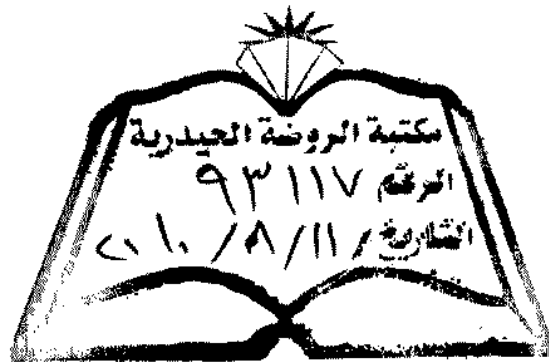 مكتبة الروضة الحيدرية
الرقم ٩٣١١٧
التاريخ ١١/٨/٢٠١٠